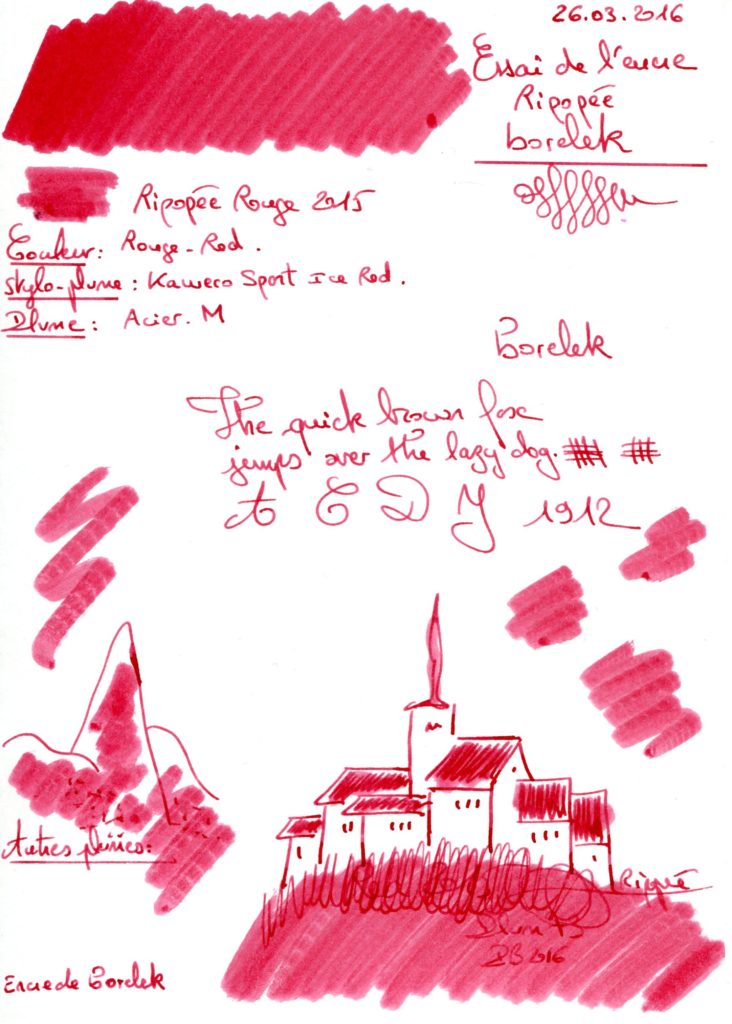 26.03.2016
Essai de l'encre
Ripopée
borelek
Ripopée Rouge 2015
Couleur: Rouge - Red.
stylo-plume: Kaweco Sport Ice Red.
Plume: Acier. M
Borelek
The quick brown fox
jumps over the lazy dog.
A C D Y 1912
Autres
Encre de Borelek
2016